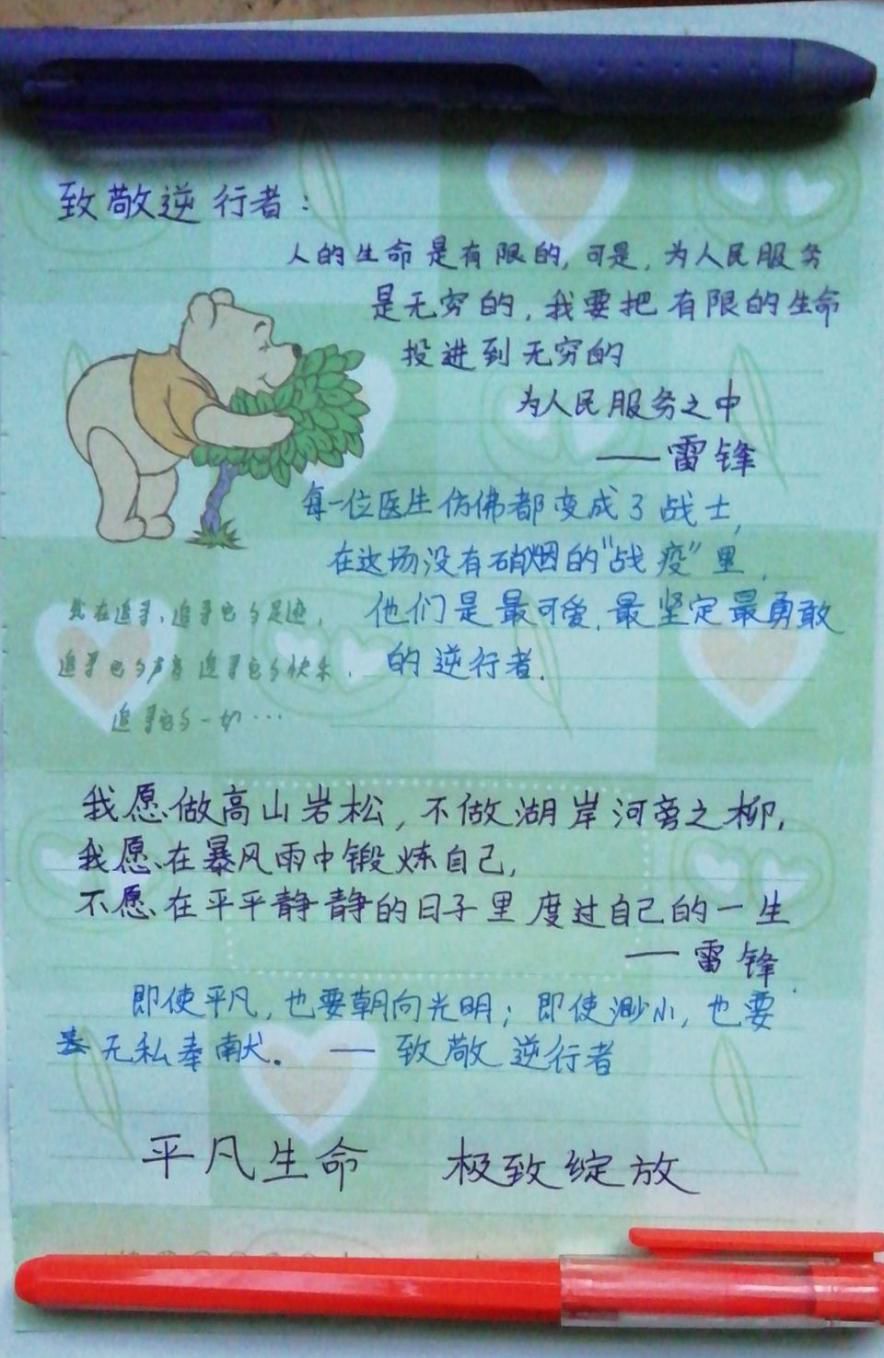 致敬逆行者：
人的生命是有限的，可是，为人民服务
是无穷的，我要把有限的生命
投进到无穷的
为人民服务之中
——雷锋
每一位医生仿佛都变成了战士，
在这场没有硝烟的“战疫”里，
他们是最可爱、最坚定最勇敢
的逆行者．
我在追寻，追寻它的足迹，
追寻它的声音 追寻它的快乐．
追寻它的一切…
我愿做高山岩松，不做湖岸河旁之柳，
我愿在暴风雨中锻炼自己，
不愿在平平静静的日子里度过自己的一生
——雷锋
即使平凡，也要朝向光明；即使渺小，也要
无私奉献．——致敬逆行者
平凡生命 极致绽放